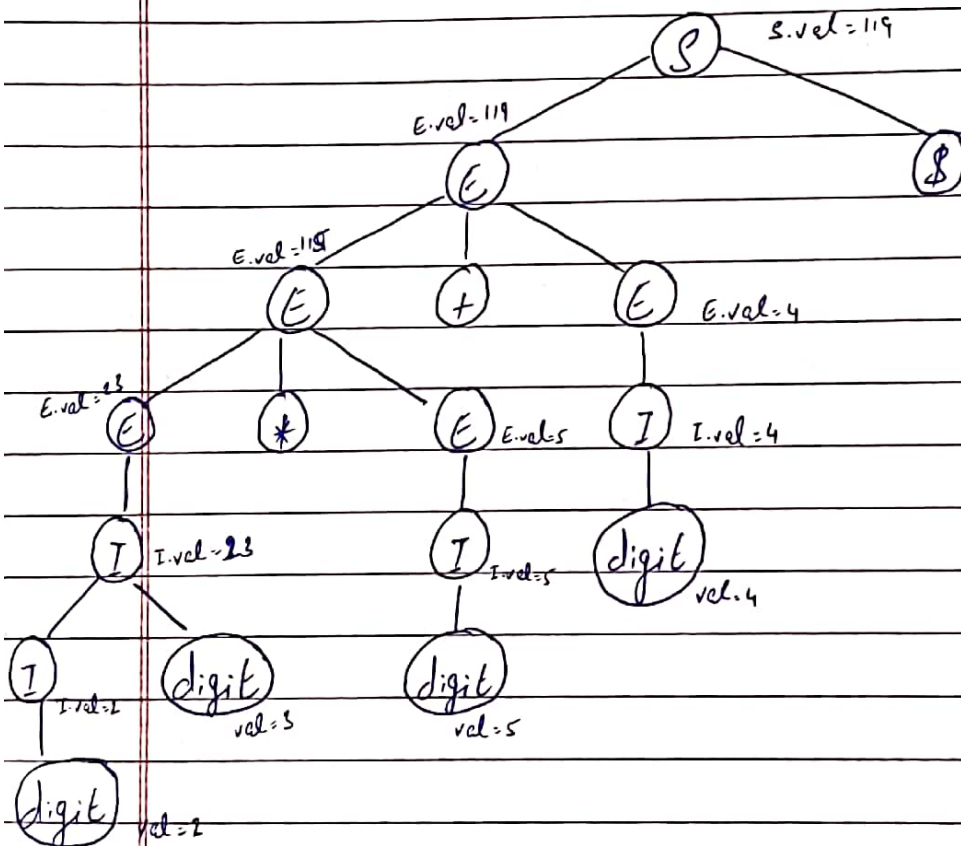 S S.val=119
E.val=119
E $
E.val=115
E + E E.val=4
E.val=23
E * E E.val=5 I I.val=4
I I.val=23 I I.val=5 digit val=4
I I.val=2 digit val=3 digit val=5
digit val=2